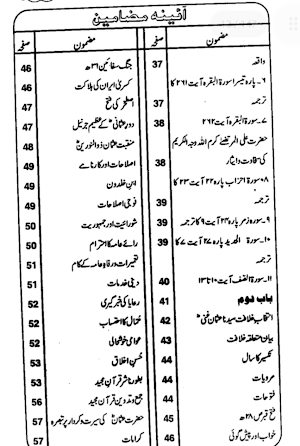 آئینہ مضامین
مضمون صفحہ
واقعہ 37
۶۔ پارہ تیسرا سورۃ البقرۃ آیت ۲۶۱ کا
ترجمہ 37
۷۔ سورۃ البقرہ آیت ۲۶۲ 38
حضرت علی المرتضےٰ کرم اللہ وجہ الکریم
کی سخاوت و ایثار 38
۸۔ سورۃ احزاب پارہ ۲۲ آیت ۲۳ کا
ترجمہ 39
۹۔ سورہ زمر پارہ ۲۳ آیت ۹ کا ترجمہ 39
۱۰۔ سورۃ الحدید پارہ ۲۷ آیت ۷ کا 39
ترجمہ
۱۱۔ سورۃ الصف آیت ۱۰ تا ۱۳ 40
باب دوم 41
انتخاب خلافت سیدنا عثمان غنیؓ 42
بیان متعلقہ خلافت 43
نکسیر کا سال 44
مرویات 44
فتوحات 44
فتح قبرص ۲۸ھ 45
خواب اور پیش گوئی 46
مضمون صفحہ
جنگ سفائین ۳۱ھ 46
کسریٰ ایران کی ہلاکت 46
اصطخر کی فتح 47
دور عثمانیؓ کے عظیم جرنیل 47
منقبت عثمان ذوالنورینؓ 48
اصلاحات اور کارنامے 49
ابن خلدون 49
فوجی اصلاحات 49
شورائیت اور جمہوریت 50
رائے عامہ کا احترام 50
تعمیرات و رفاہ عامہ کے کام 51
دینی خدمات 51
رعایا کی خبر گیری 52
عمال کا احتساب 52
عوامی خوشحالی 52
حسن اخلاق 53
بطور ناشر قرآن مجید 53
جمع و تدوین قرآن مجید 56
حضرت عثمانؓ کی سیرت و کردار پر تبصرہ 57
کرامات 57